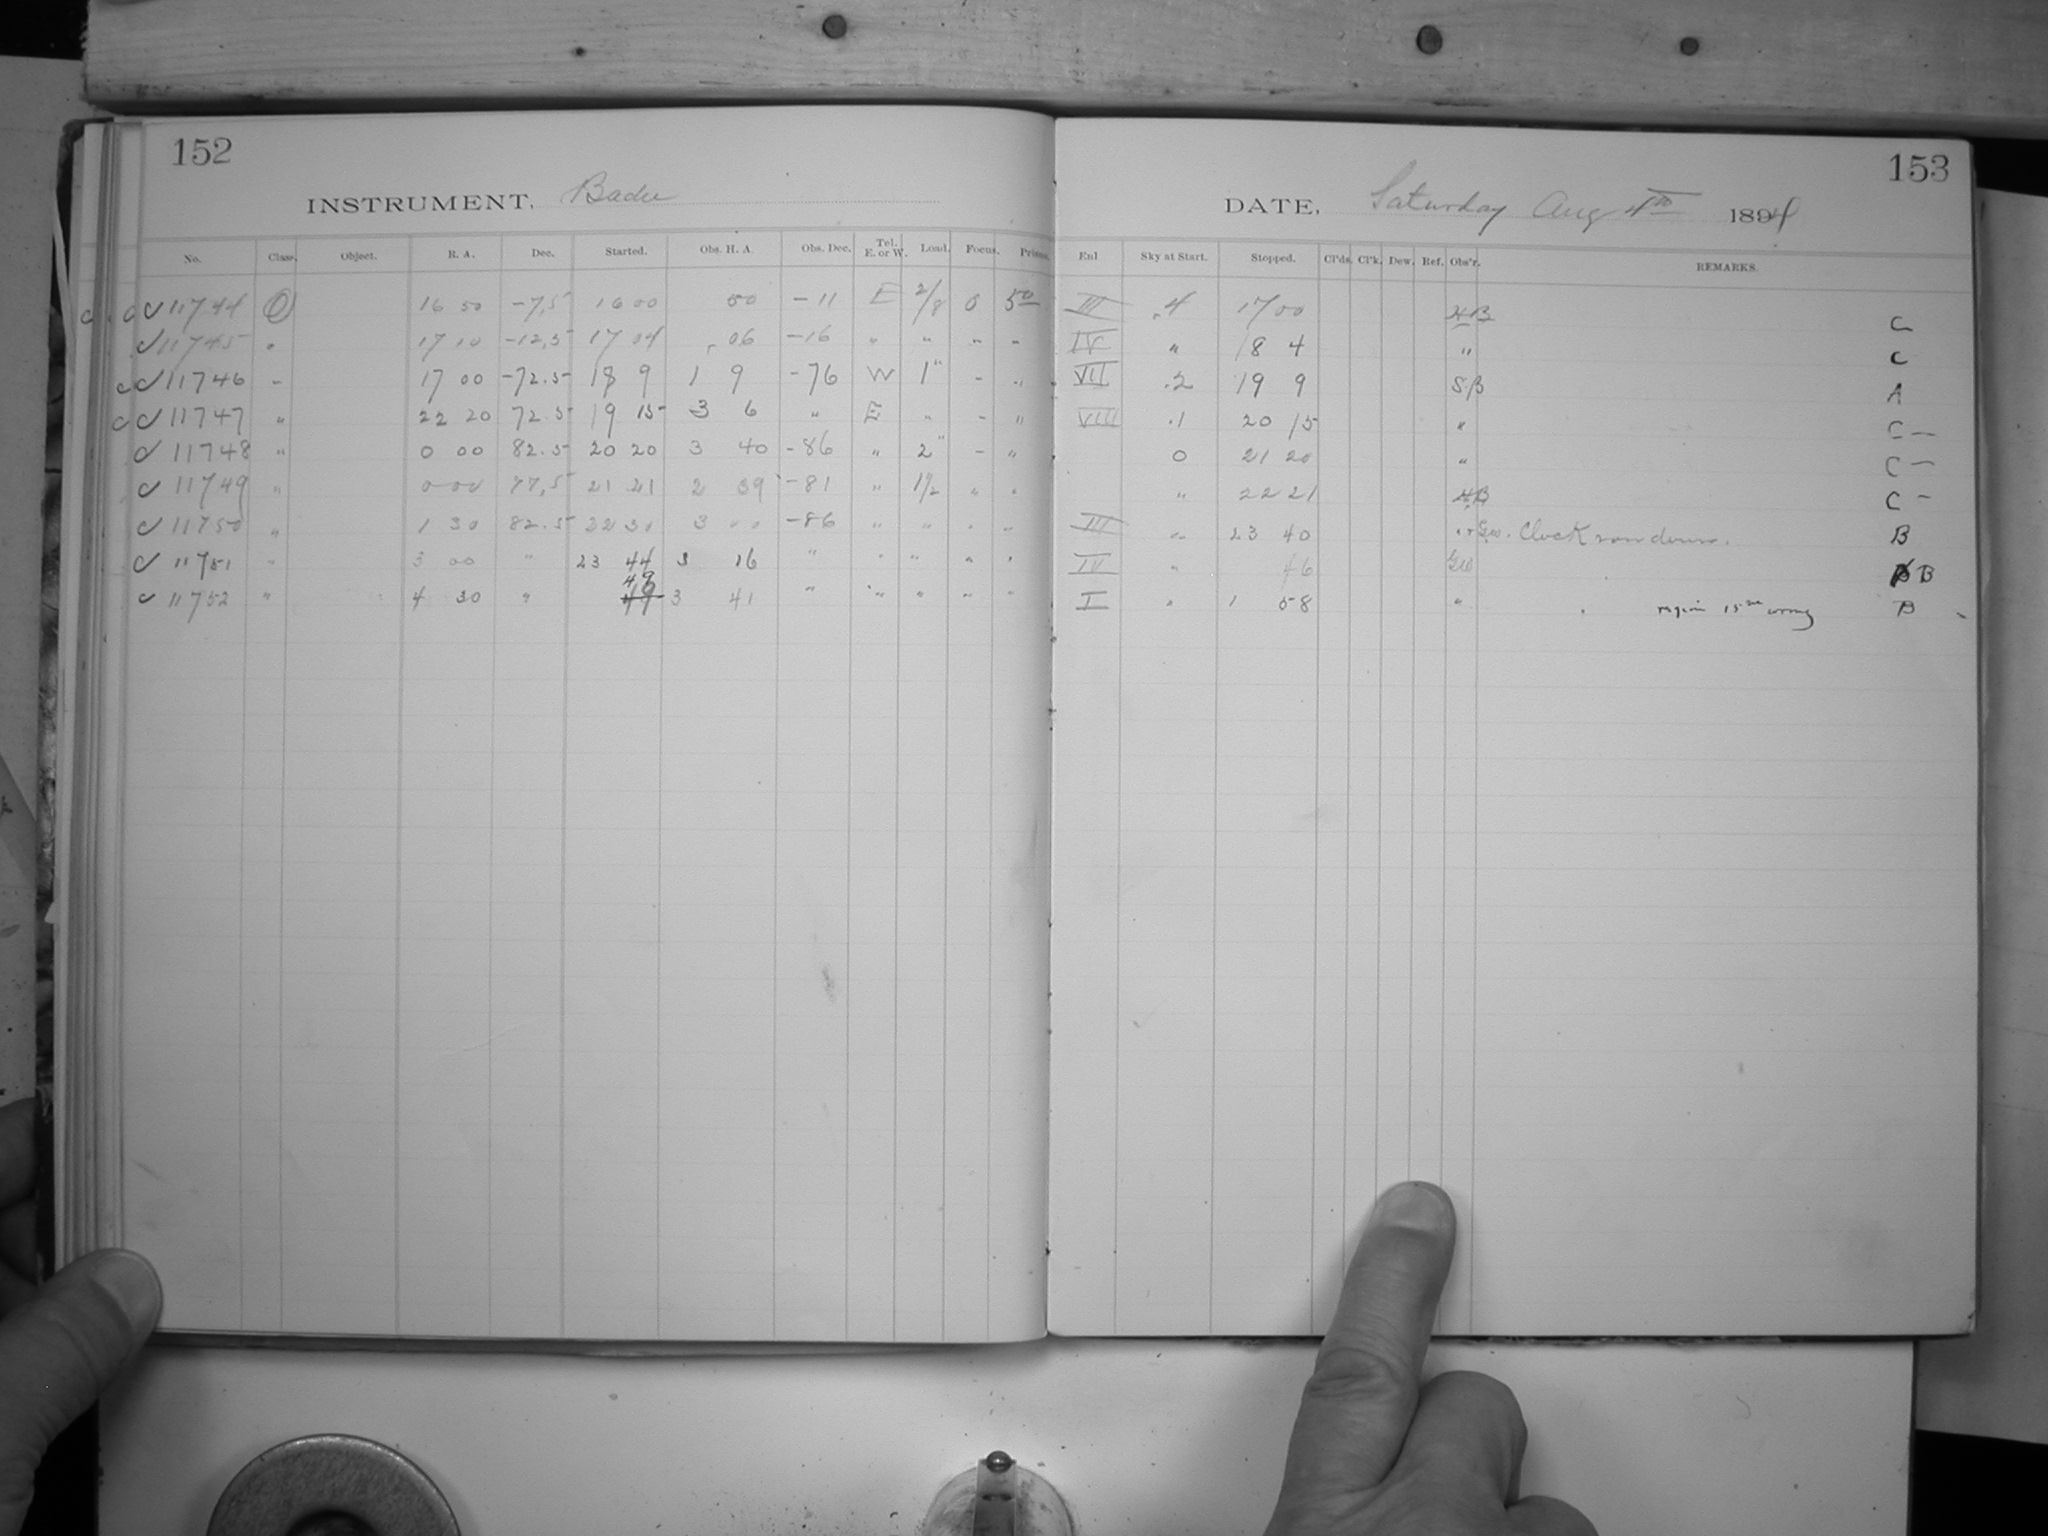 152
INSTRUMENT. Bache
No. Class. Object. R. A. Dec. Started. Obs. H. A. Obs. Dec. Tel. E. or W. Load. Focus. Prisms.
c c ✓ 11744 O 16 50 -7.5 16 00 50 -11 E 2/8 0 50
✓ 11745 " 17 10 -12.5 17 04 .06 -16 " " " "
c ✓ 11746 " 17 00 -72.5 18 9 1 9 -76 W 1" - "
c ✓ 11747 " 22 20 72.5 19 15 3 6 " E " - "
✓ 11748 " 0 00 82.5 20 20 3 40 -86 " 2" - "
✓ 11749 " 0 00 77.5 21 21 2 39 -81 " 1/2 " "
✓ 11750 " 1 30 82.5 22 30 3 00 -86 " " " "
✓ 11751 " 3 00 " 23 44 3 16 " " " " "
49
✓ 11752 " 4 30 " 49 3 41 " " " " "
153
DATE. Saturday Aug 4th 1894
Enl Sky at Start. Stopped. Cl'ds. Cl'k. Dew. Ref. Obs'r. REMARKS.
III .4 17 00 HB C
IV " 18 4 " C
VII .2 19 9 S.B A
VIII .1 20 15 " C —
0 21 20 " C —
" 22 21 HB C —
III " 23 40 " + Gw. Clock ran down. B
IV " 46 GW B B
I " 1 58 " region 15m wrong B